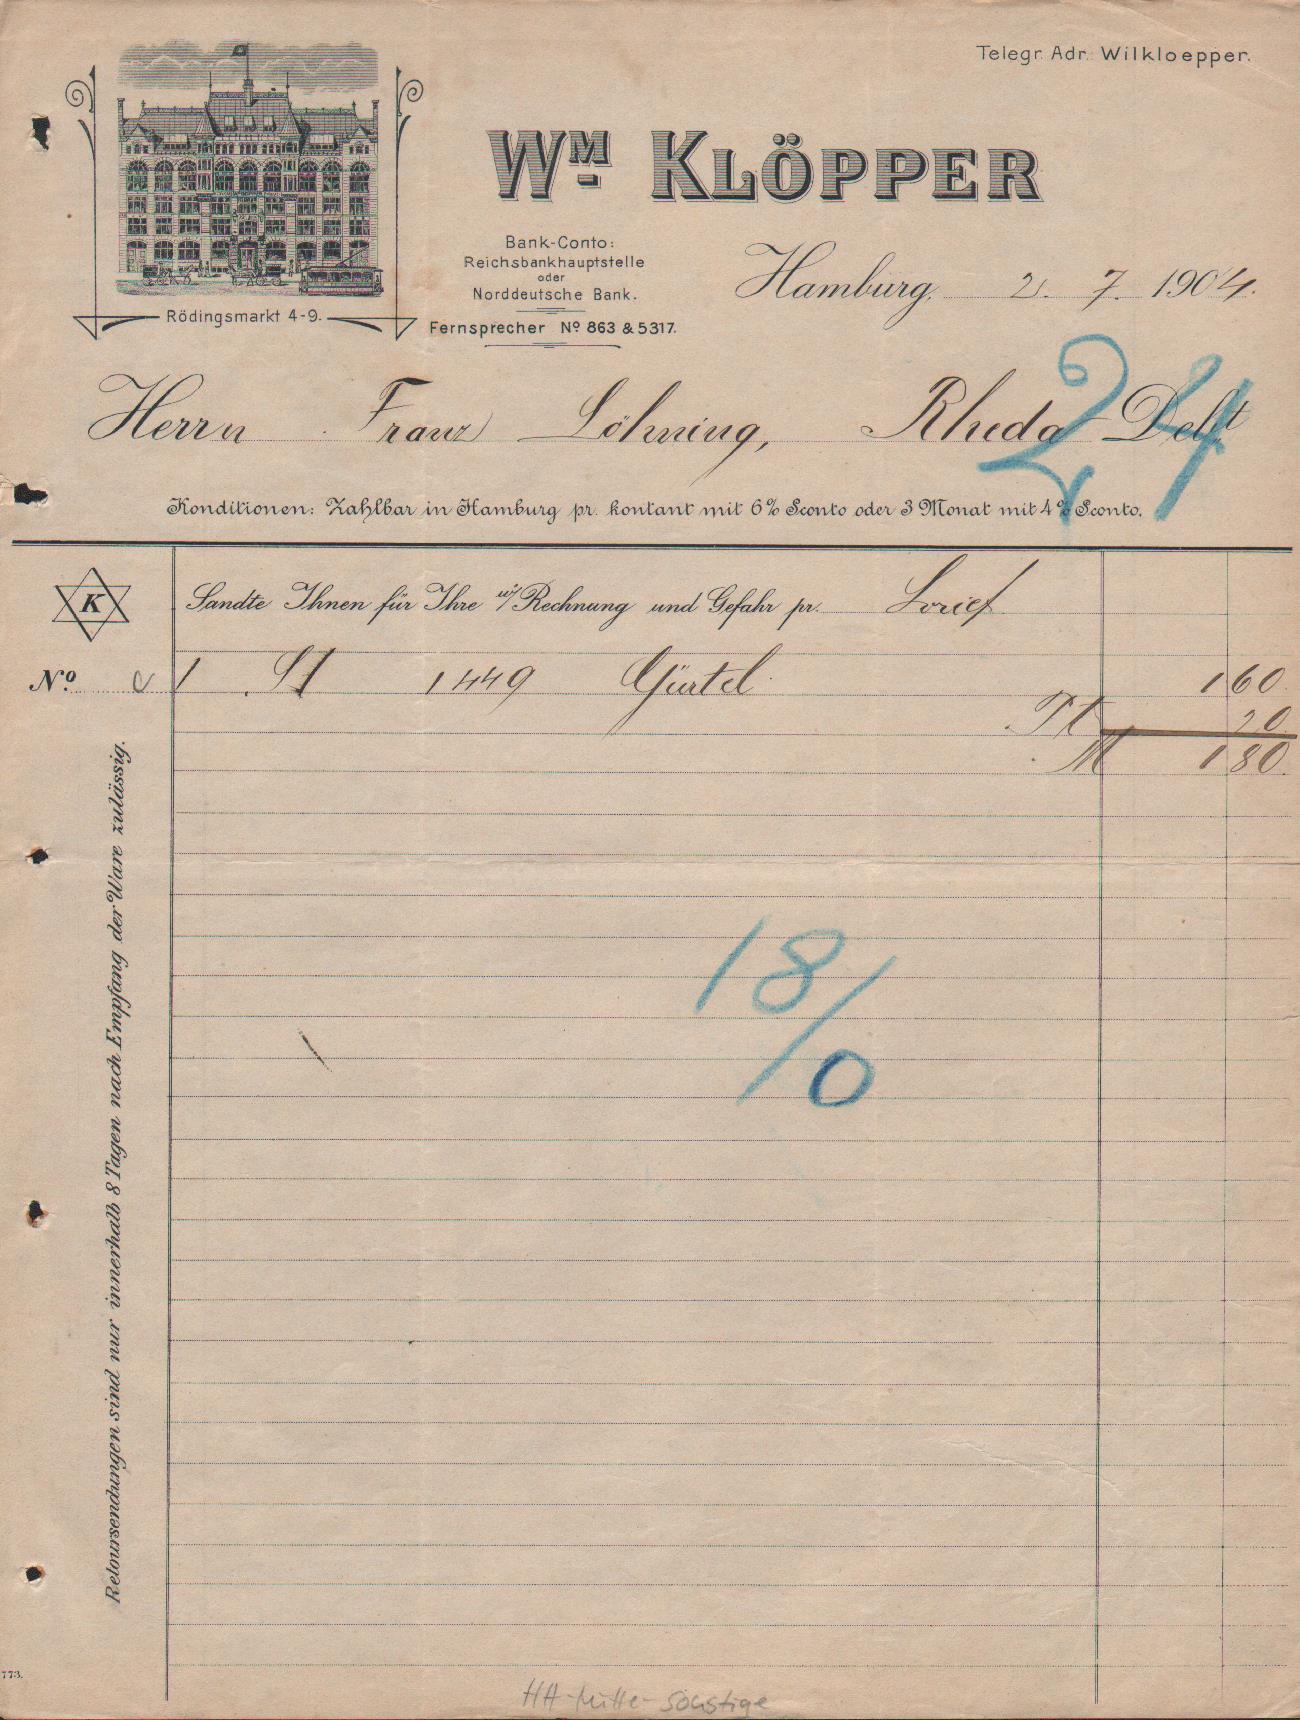 Telegr. Adr. Wilkloepper.
WM KLÖPPER
Bank-Conto:
Reichsbankhauptstelle
oder
Norddeutsche Bank.
Fernsprecher No 863 & 5317.
Rödingsmarkt 4-9.
Hamburg, 2. 7. 1904.
Herrn Franz Löhning, Rheda
24
Konditionen: Zahlbar in Hamburg pr. kontant mit 6% Sconto oder 3 Monat mit 4% Sconto.
K
Sandte Ihnen für Ihre w/ Rechnung und Gefahr pr.
No. 1 St 1449 Gürtel 1 60
Pt 20
M 1 80
18/0
Retoursendungen sind nur innerhalb 8 Tagen nach Empfang der Ware zulässig.
773.
HH-Mitte-sonstige